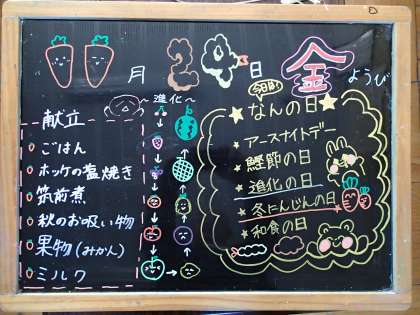 月 24 日 金 ようび
献立
ごはん
ホッケの塩焼き
筑前煮
秋のお吸い物
果物(みかん)
ミルク
〜進化〜
今日は
なんの日
アースナイトデー
鰹節の日
進化の日
冬にんじんの日
和食の日